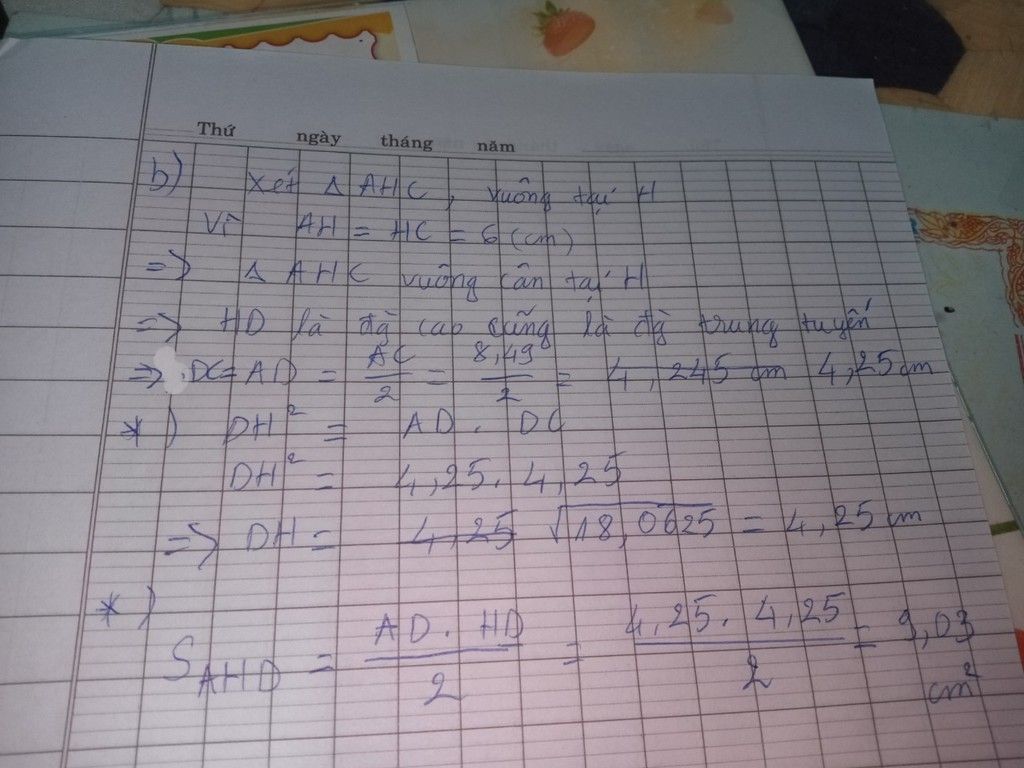 Thứ ngày tháng năm
b) Xét Δ AHC, vuông tại H
Vì AH = HC = 6 (cm)
=> Δ AHC vuông cân tại H
=> HD là đg cao cũng là đg trung tuyến
=> DC = AD = AC/2 = 8,49/2 = 4,245 cm 4,25 cm
*) DH² = AD . DC
DH² = 4,25 . 4,25
=> DH = 4,25 √18,0625 = 4,25 cm
*) S_AHD = AD . HD/2 = 4,25 . 4,25/2 = 9,03
cm²